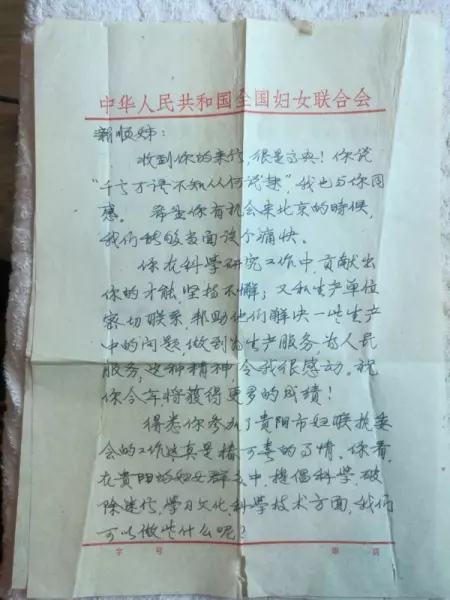 中华人民共和国全国妇女联合会
新顺姊:
收到你的来信,很是高兴!你说
"千言万语不知从何说起",我也与你同
感。希望你有机会来北京的时候,
我们能够当面谈个痛快。
你在科学研究工作中,贡献出
你的才能,坚持不懈;又和生产单位
密切联系,帮助他们解决一些生产
中的问题,做到为生产服务,为人民
服务,这种精神,令我很感动。祝
你今年将獲得更多的成绩!
得悉你参加了貴阳市妇联执委
会的工作,这真是椿可喜的事情。你看,
在貴阳的妇女群众中,提倡科学,破
除迷信,学习文化、科学技术方面,我们
可以做些什么呢?
字 号